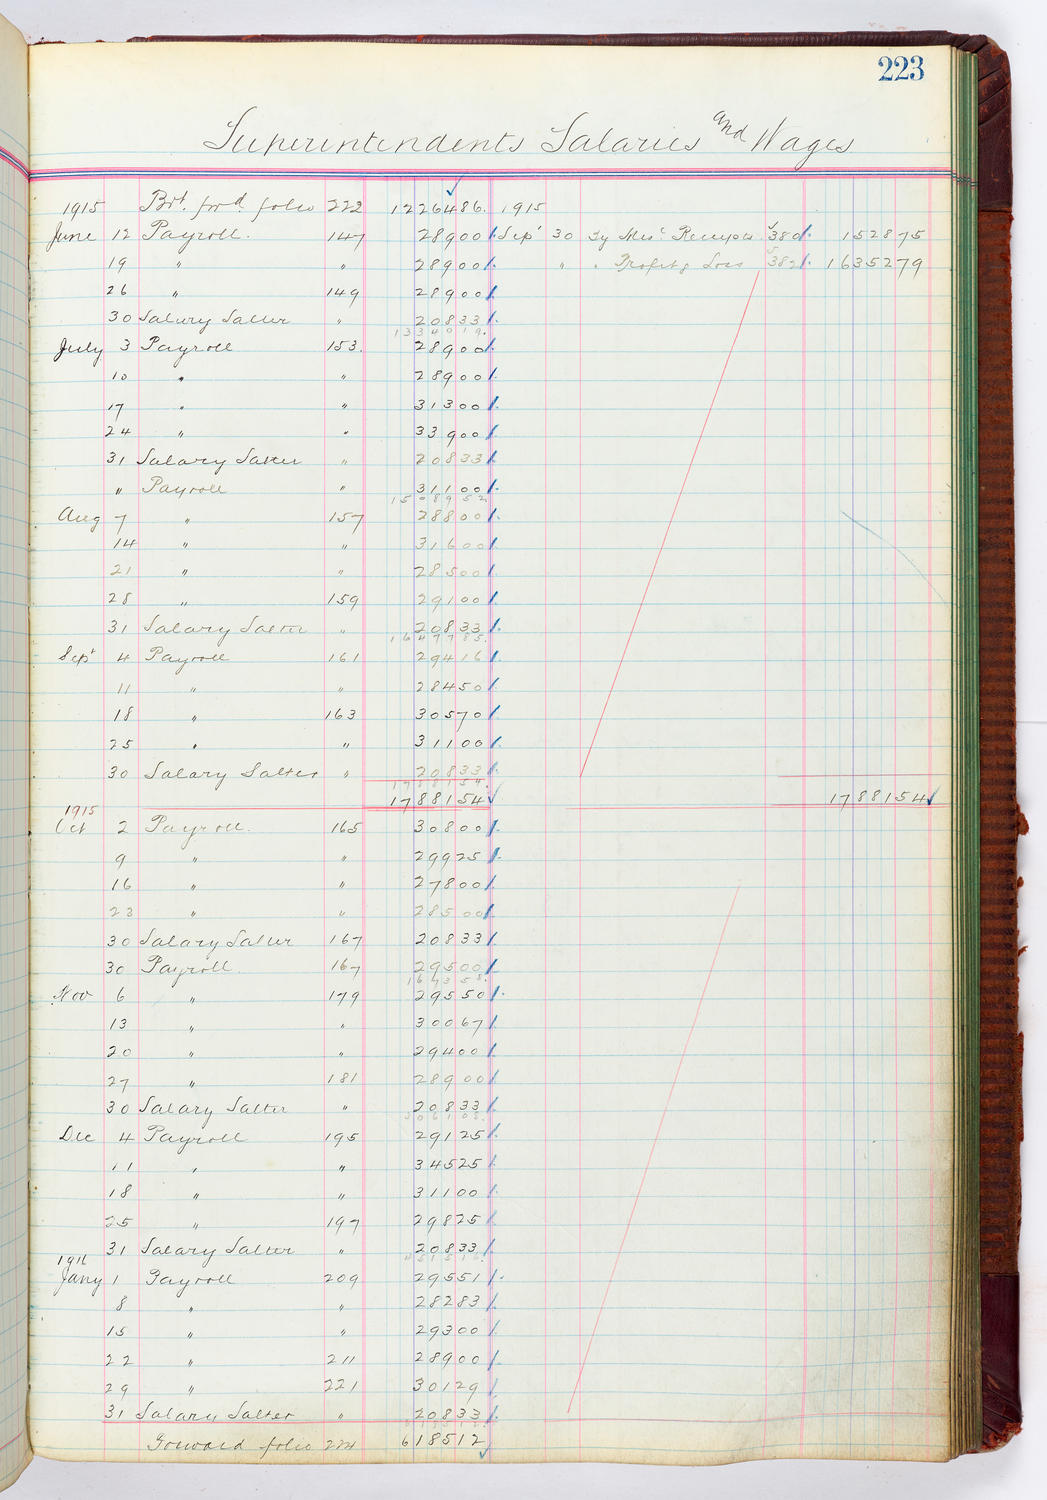 223
Superintendents Salaries and Wages
1915 Brt. forwd. folio 222 1226486. 1915
June 12 Payroll. 147 28900 Sept 30 By Mis. Receipts 380 152875
19 " " 28900 " " Profit & Loss 382 1635279
26 " 149 28900
30 Salary Salter " 20833
1334019.
July 3 Payroll 153. 28900
10 " " 28900
17 " " 31300
24 " " 33900
31 Salary Salter " 20833
" Payroll " 31100
1508952
Aug 7 " 157 28800
14 " " 31600
21 " " 28500
28 " 159 29100
31 Salary Salter " 20833
1647785.
Sept 4 Payroll 161 29416
11 " " 28450
18 " 163 30570
25 " " 31100
30 Salary Salter " 20833
1788154.
1788154 1788154
1915
Oct 2 Payroll. 165 30800
9 " " 29925
16 " " 27800
23 " " 28500
30 Salary Salter 167 20833
30 Payroll. 167 29500
167358.
Nov 6 " 179 29550
13 " " 30067
20 " " 29400
27 " 181 28900
30 Salary Salter " 20833
306108.
Dec 4 Payroll 195 29125
11 " " 34525
18 " " 31100
25 " 197 29825
31 Salary Salter " 20833
451516.
1916
Jany 1 Payroll 209 29551
8 " " 28283
15 " " 29300
22 " 211 28900
29 " 221 30129
31 Salary Salter " 20833
Forward folio 224 618512